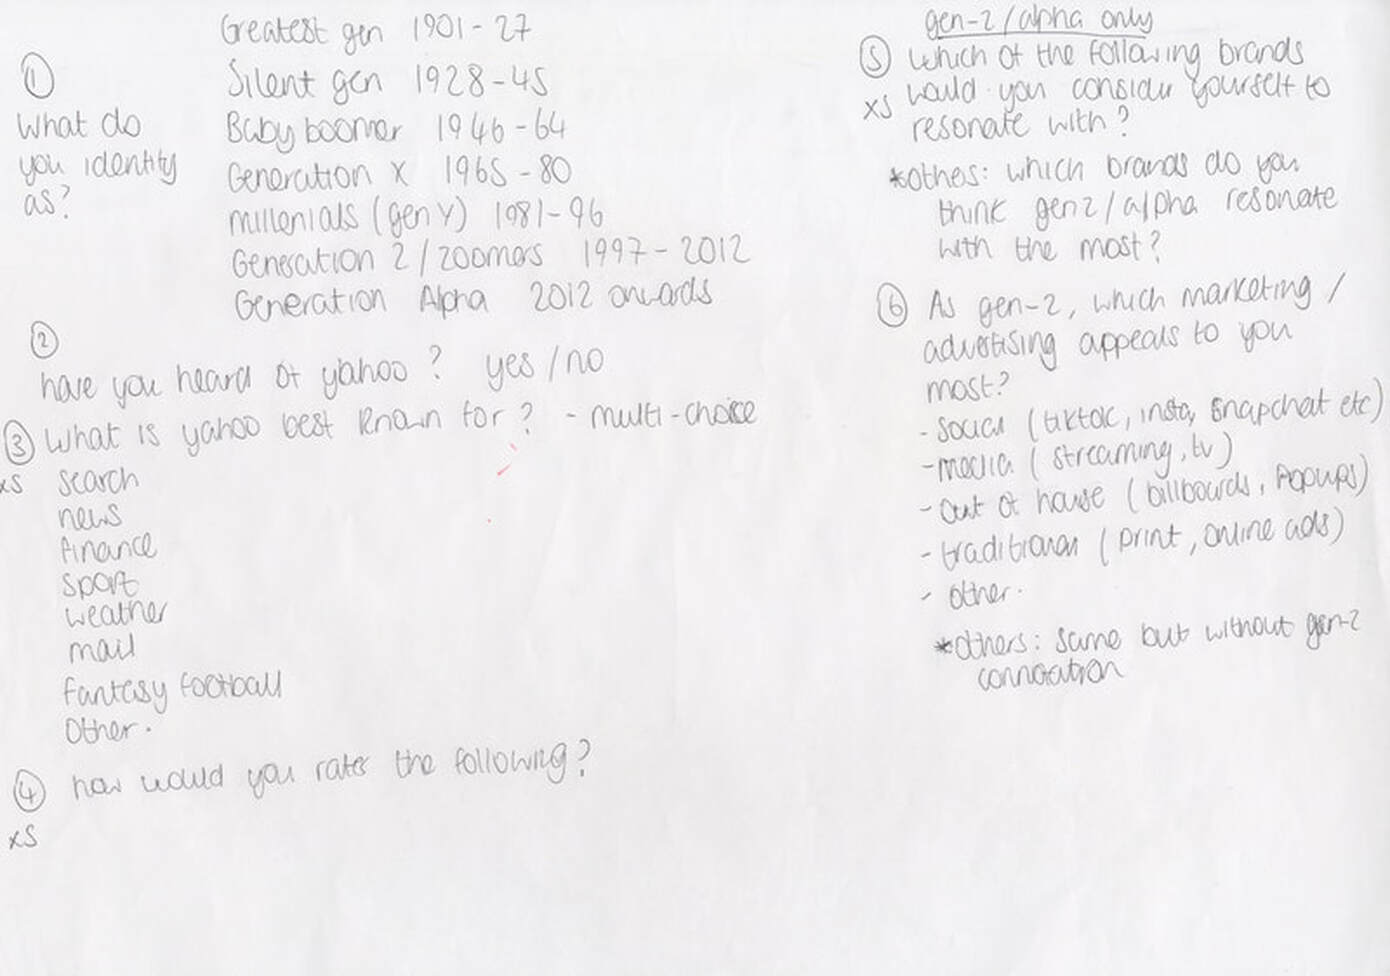 Greatest gen 1901-27
① Silent gen 1928-45
What do Baby boomer 1946-64
you identity Generation X 1965-80
as? millenials (gen Y) 1981-96
Generation Z/zoomers 1997-2012
Generation Alpha 2012 onwards
②
have you heard of yahoo? yes/no
③ What is yahoo best known for? - multi-choice
x5 search
news
finance
sport
weather
mail
fantasy football
other.
④ how would you rate the following?
x5
gen-z/alpha only
⑤ which of the following brands
x5 would you consider yourself to
resonate with?
*others: which brands do you
think genz/alpha resonate
with the most?
⑥ As gen-z, which marketing/
advertising appeals to you
most?
- social (tiktok, insta, snapchat etc)
- media (streaming, tv)
- out of house (billboards, Popups)
- traditional (print, online ads)
- other.
*others: same but without gen-z
connotation